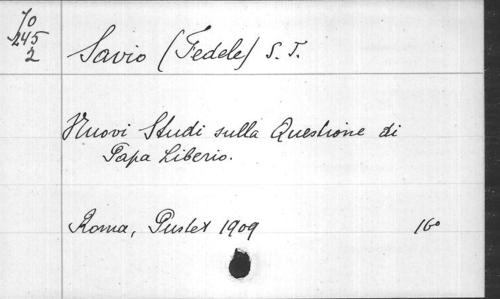 70
245
2
Savio (Fedele) S. J.
Nuovi Studi sulla Questione di
Papa Liberio.
Roma, Pustet 1909 16°